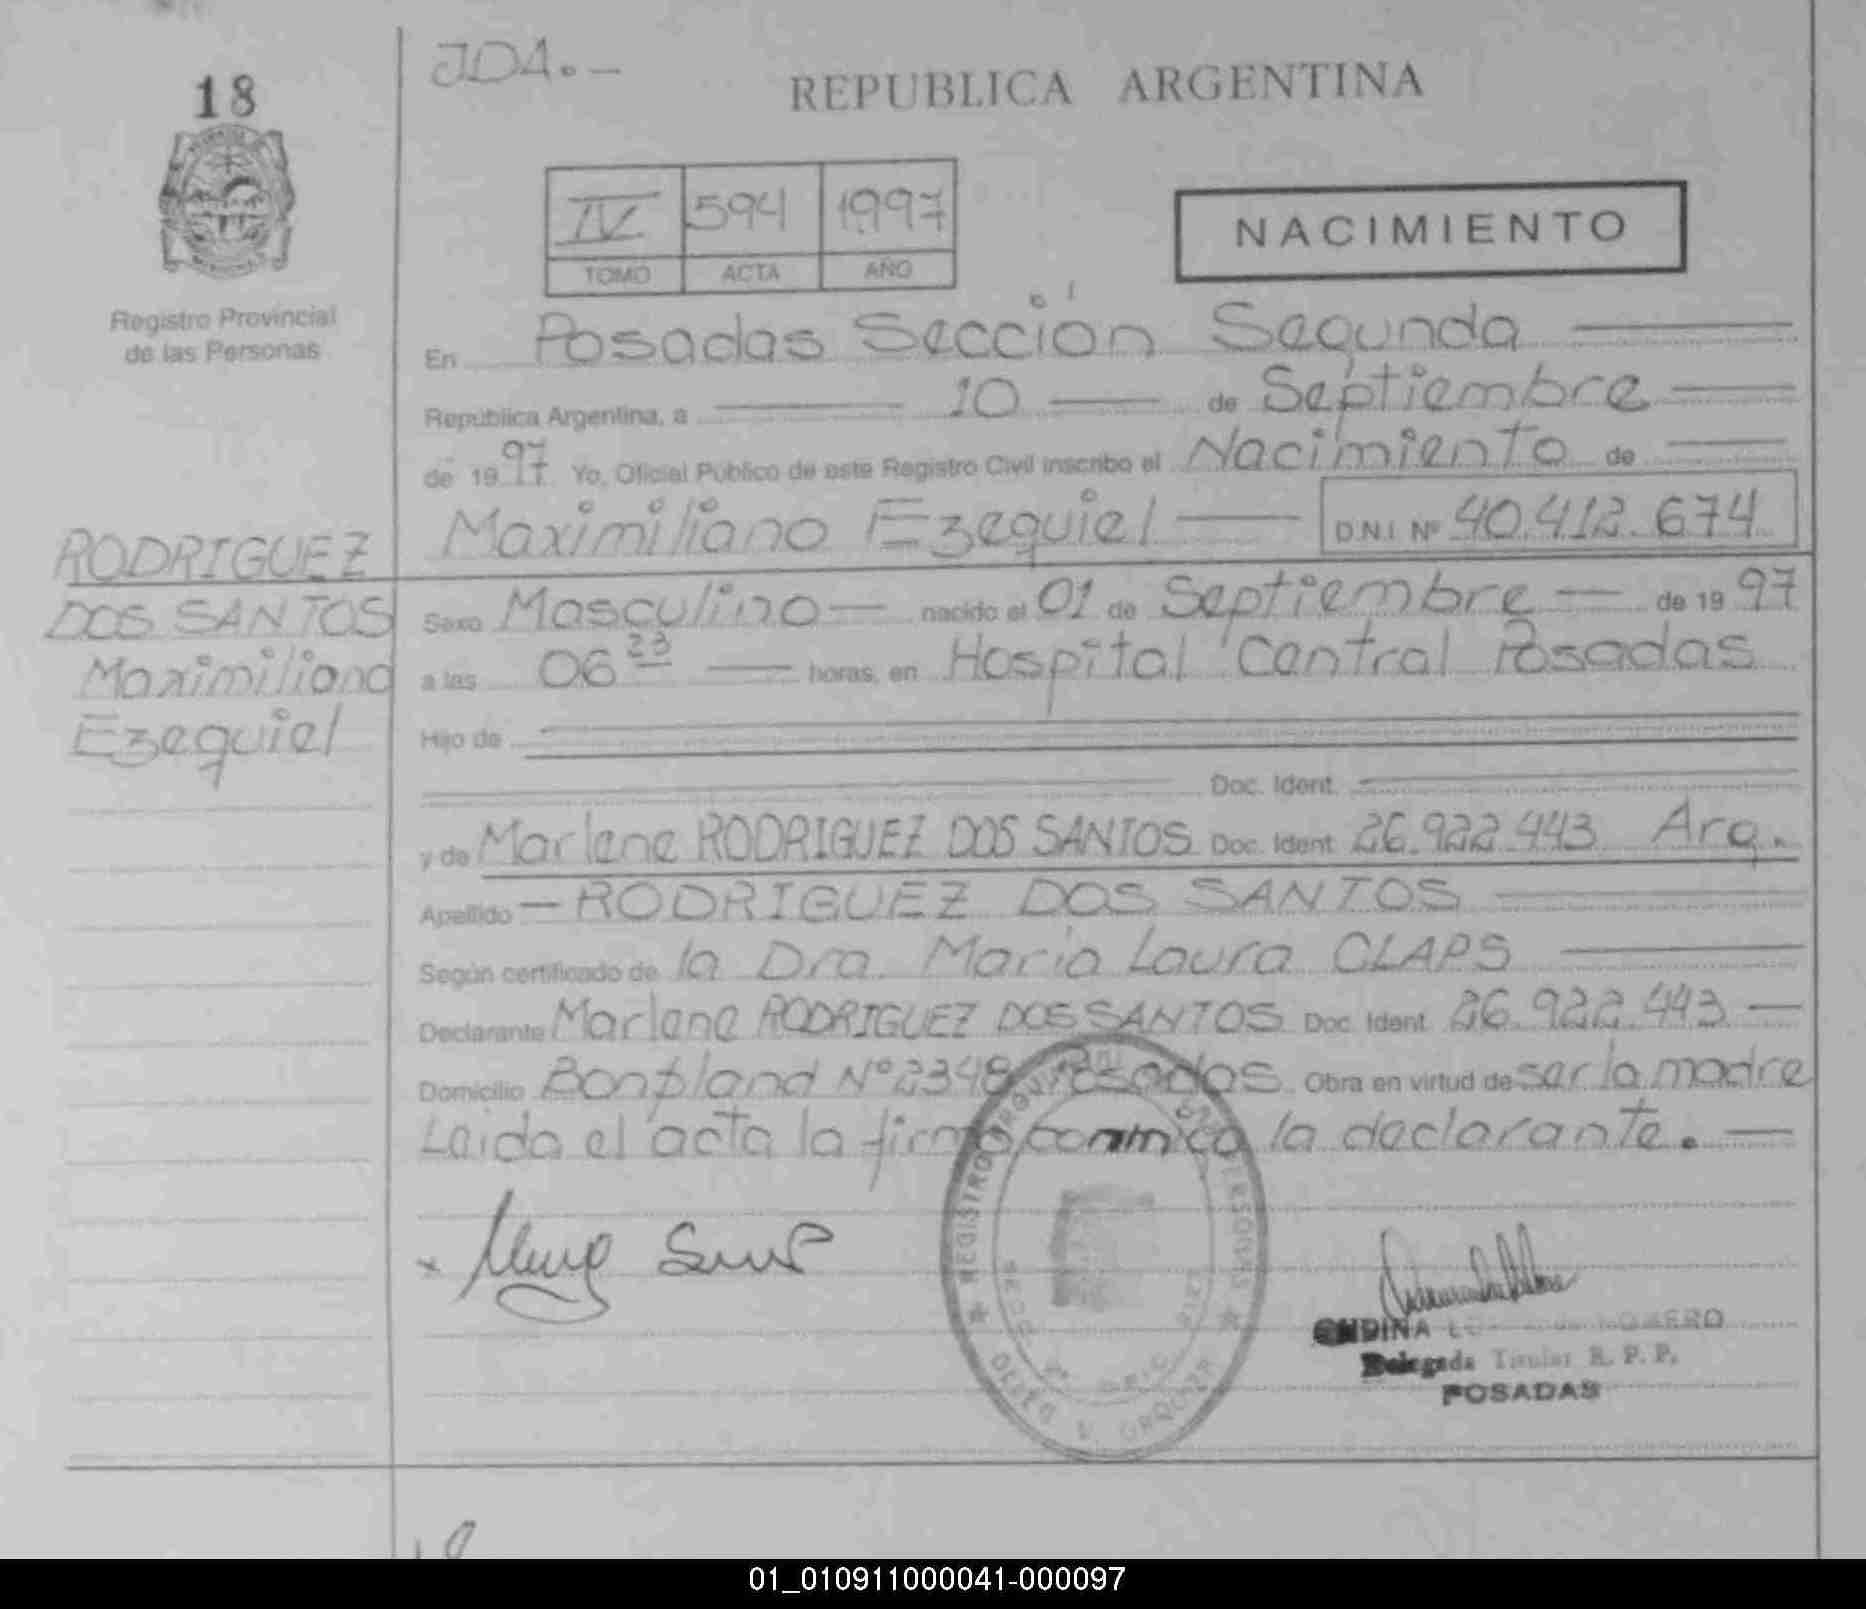 18
JDA.-
REPUBLICA ARGENTINA
IV 594 1997
TOMO ACTA AÑO
NACIMIENTO
Registro Provincial
de las Personas
En Posadas Sección Segunda
República Argentina, a 10 de Septiembre
de 1997 Yo, Oficial Público de este Registro Civil inscribo el Nacimiento de
Maximiliano Ezequiel D.N.I. Nº 40.412.674
RODRIGUEZ
DOS SANTOS
Maximiliano
Ezequiel
Sexo Masculino — nacido el 01 de Septiembre — de 1997
a las 06 23 — horas, en Hospital Central Posadas
Hijo de
Doc. Ident.
y de Marlene RODRIGUEZ DOS SANTOS Doc. Ident. 26.922.443 Arg.
Apellido — RODRIGUEZ DOS SANTOS
Según certificado de la Dra. Maria Laura CLAPS
Declarante Marlene RODRIGUEZ DOS SANTOS Doc. Ident. 26.922.443 —
Domicilio Bonpland Nº 2348 Posadas Obra en virtud de ser la madre
Leida el acta la firma conmigo la declarante. —
REGISTRO
PERSONAS
ROMERO
Delegada Titular R. P. P.
POSADAS
01_010911000041-000097